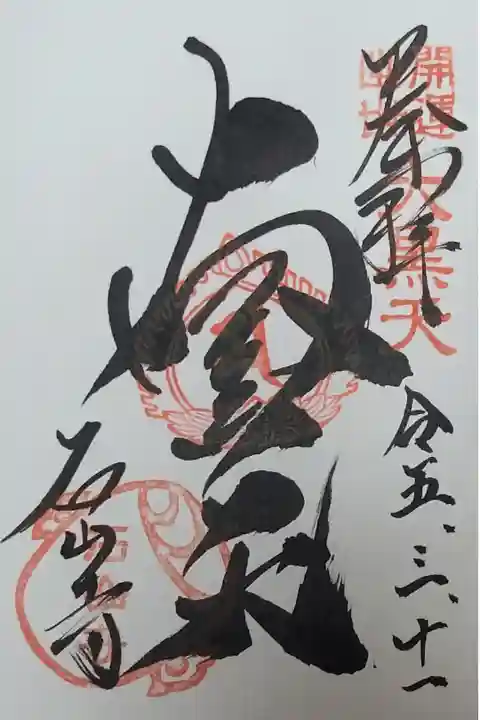 奉拝
開運
出世
大黒天
令五、三、十一
大黒天
石山寺